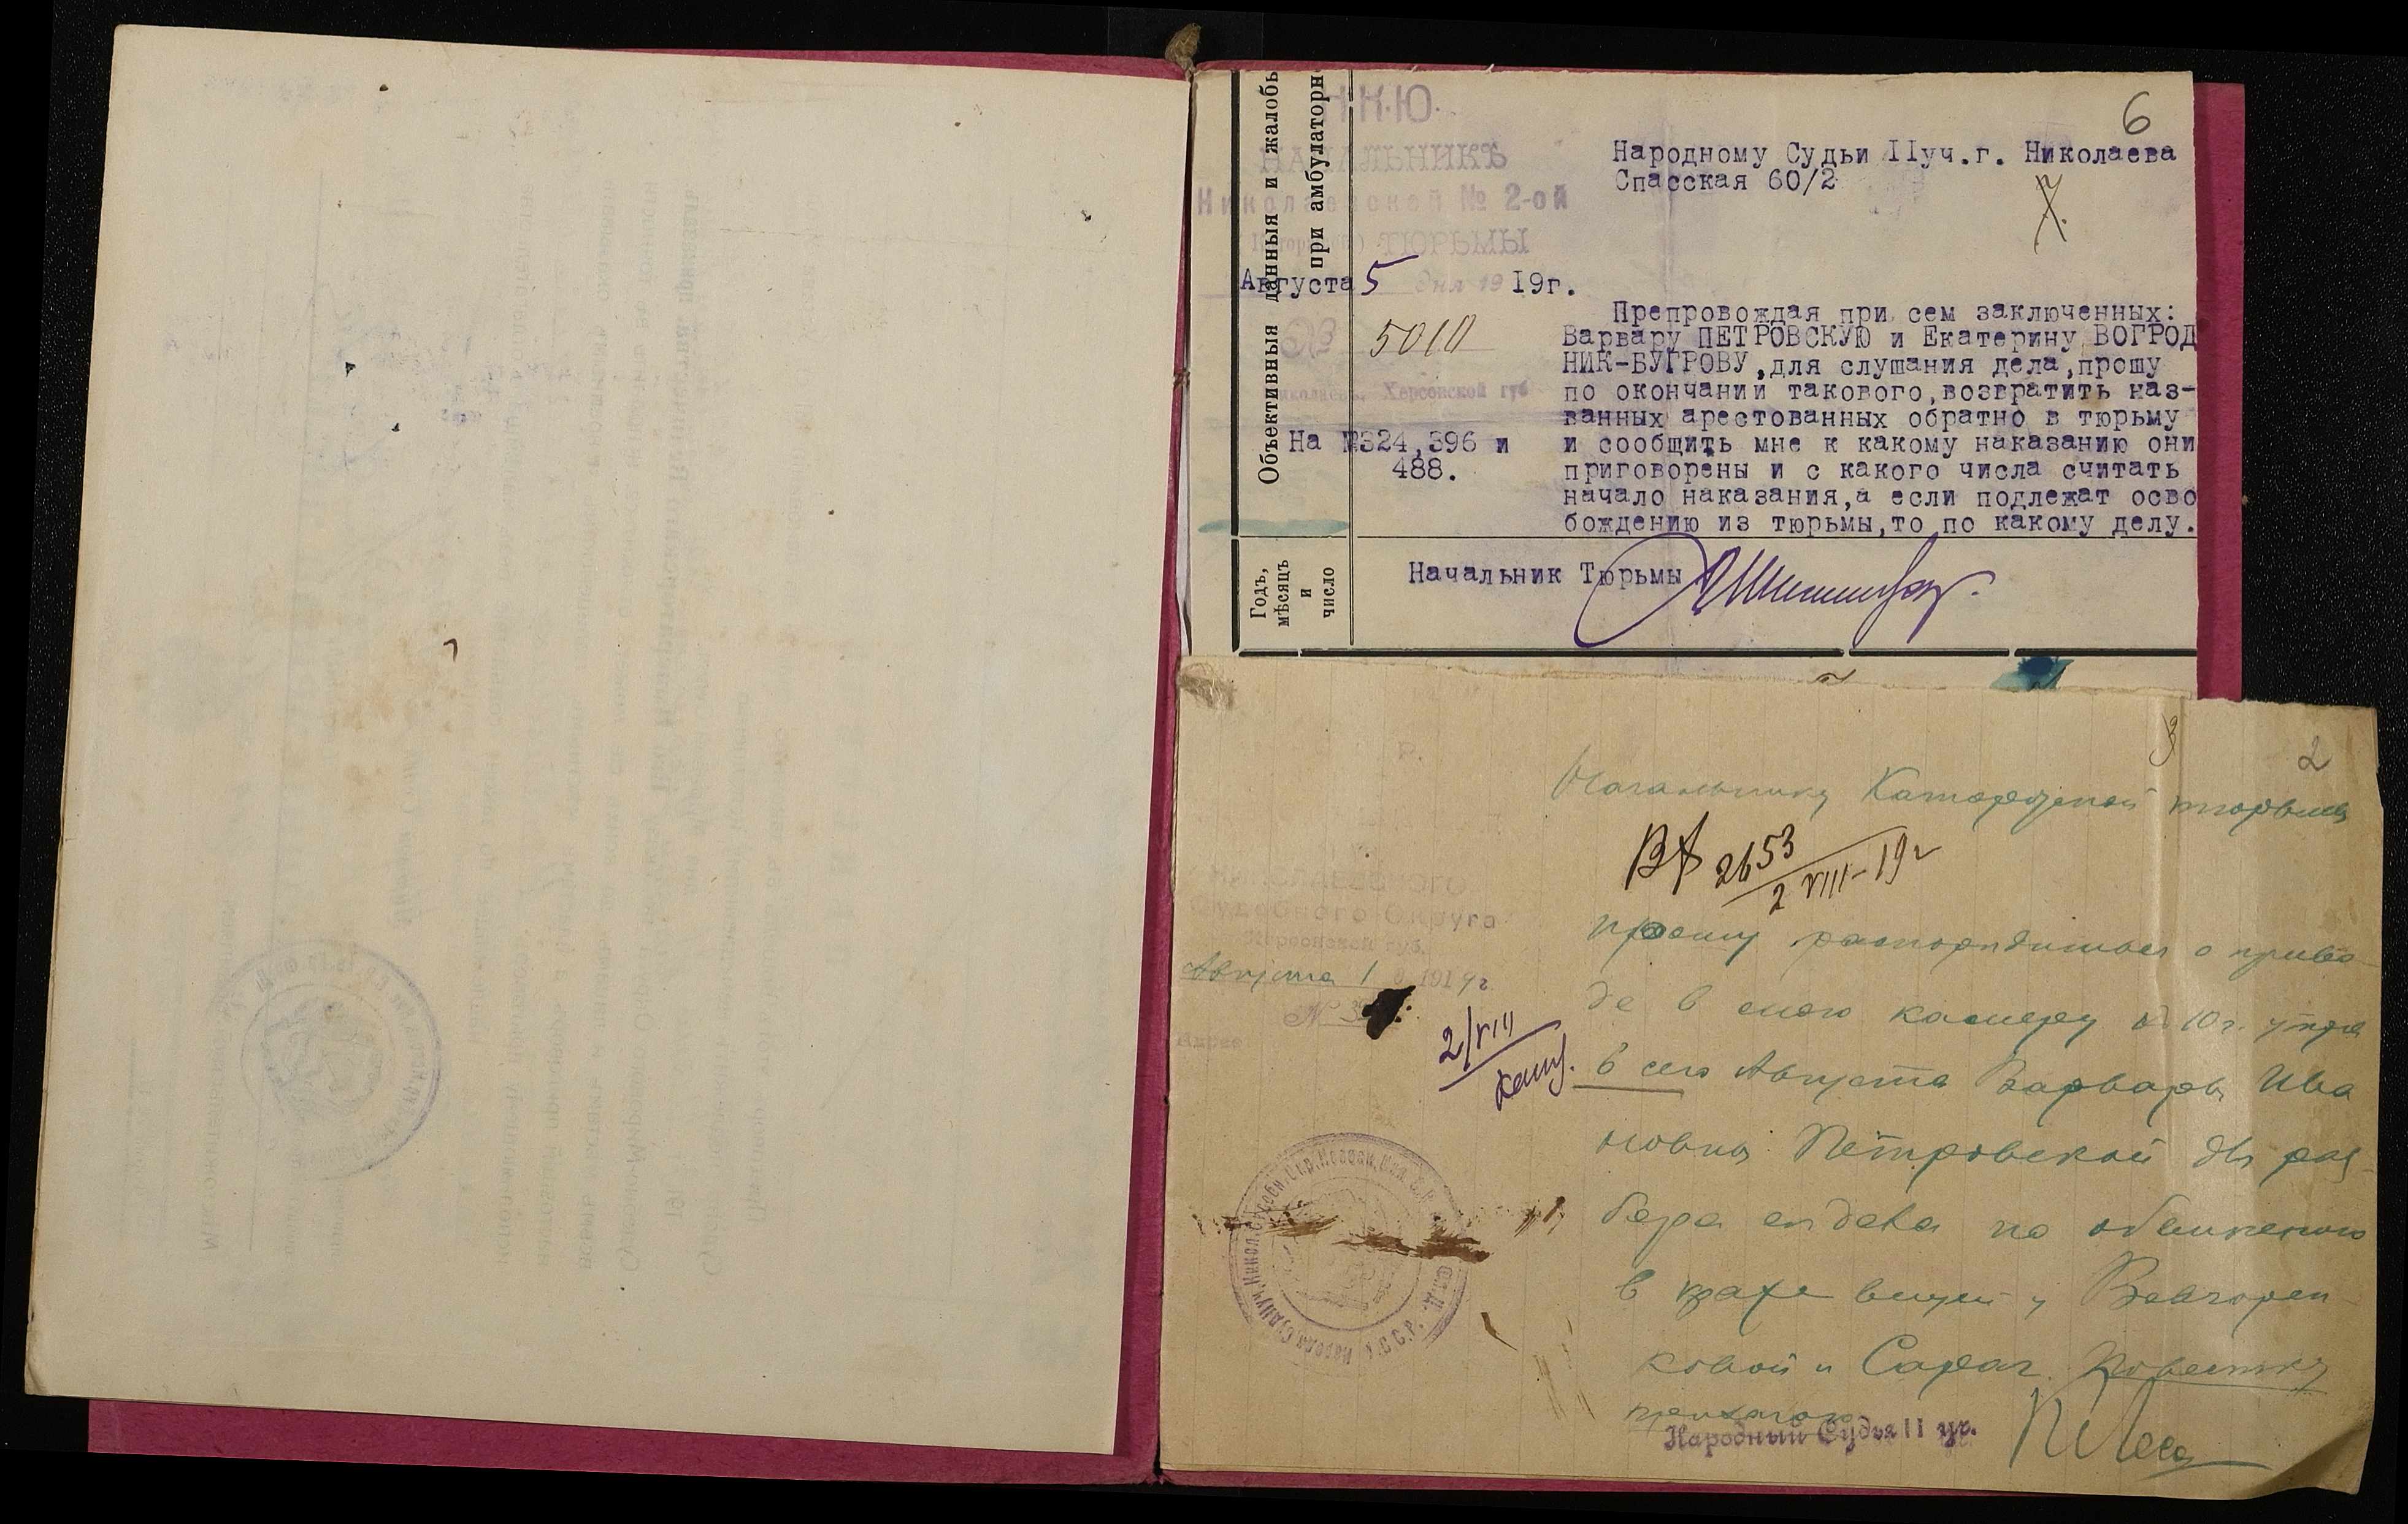 6
Н.К.Ю.
НАЧАЛЬНИКЪ
Николаевской № 2-ой
ТЮРЬМЫ
Августа 5 дня 1919г.
№ 5010
Николаевъ, Херсонской губ
На №324,396 и
488.
Народному Судьи IIуч.г. Николаева
Спасская 60/2
7.
Препровождая при сем заключенных:
Варвару ПЕТРОВСКУЮ и Екатерину ВОГРОД
НИК-БУГРОВУ,для слушания дела,прошу
по окончании такового,возвратить наз-
ванных арестованных обратно в тюрьму
и сообщить мне к какому наказанию они
приговорены и с какого числа считать
начало наказания,а если подлежат осво
бождению из тюрьмы,то по какому делу.
Начальник Тюрьмы
Объективныя данныя и жалобы
при амбулаторн
Годъ,
мѣсяцъ
и
число
3
2
Начальнику Каторжной тюрьмы
2653
2 VIII-19г
НИКОЛАЕВСКОГО
Судебного Округа
Херсонской губ.
Августа 1 д. 1919г.
№ 3
Адрес
2/VIII
прошу распорядиться о приво-
де в мою камеру к 10 ч. утра
6 сего Августа Варвары Ива
новны Петровской для раз-
бора ея дела по обвинению
в краже вещей у
ковой и Сарач. Повестку
прилагаю
Народный Судья II уч.